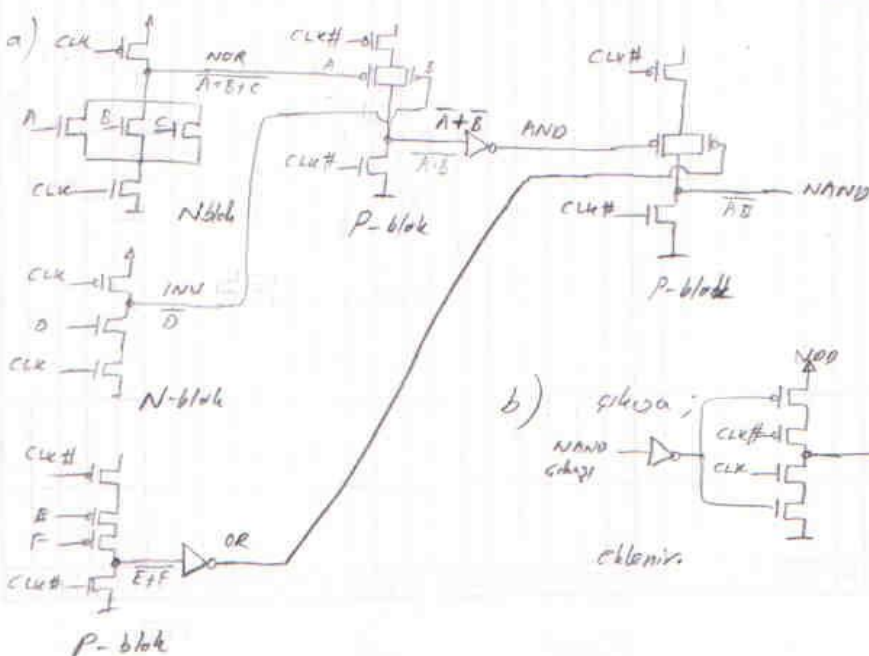 a)
CLK
NOR
A+B+C
A
B
C
CLK
N blok
CLK#
A
B
A+B
A·B
AND
CLK#
P-blok
CLK#
NAND
AB
CLK#
P-blok
CLK
INV
D
D
CLK
N-blok
CLK#
E
F
OR
E+F
CLK#
P-blok
b) çıkışa ;
VDD
CLK#
CLK
NAND
çıkışı
eklenir.